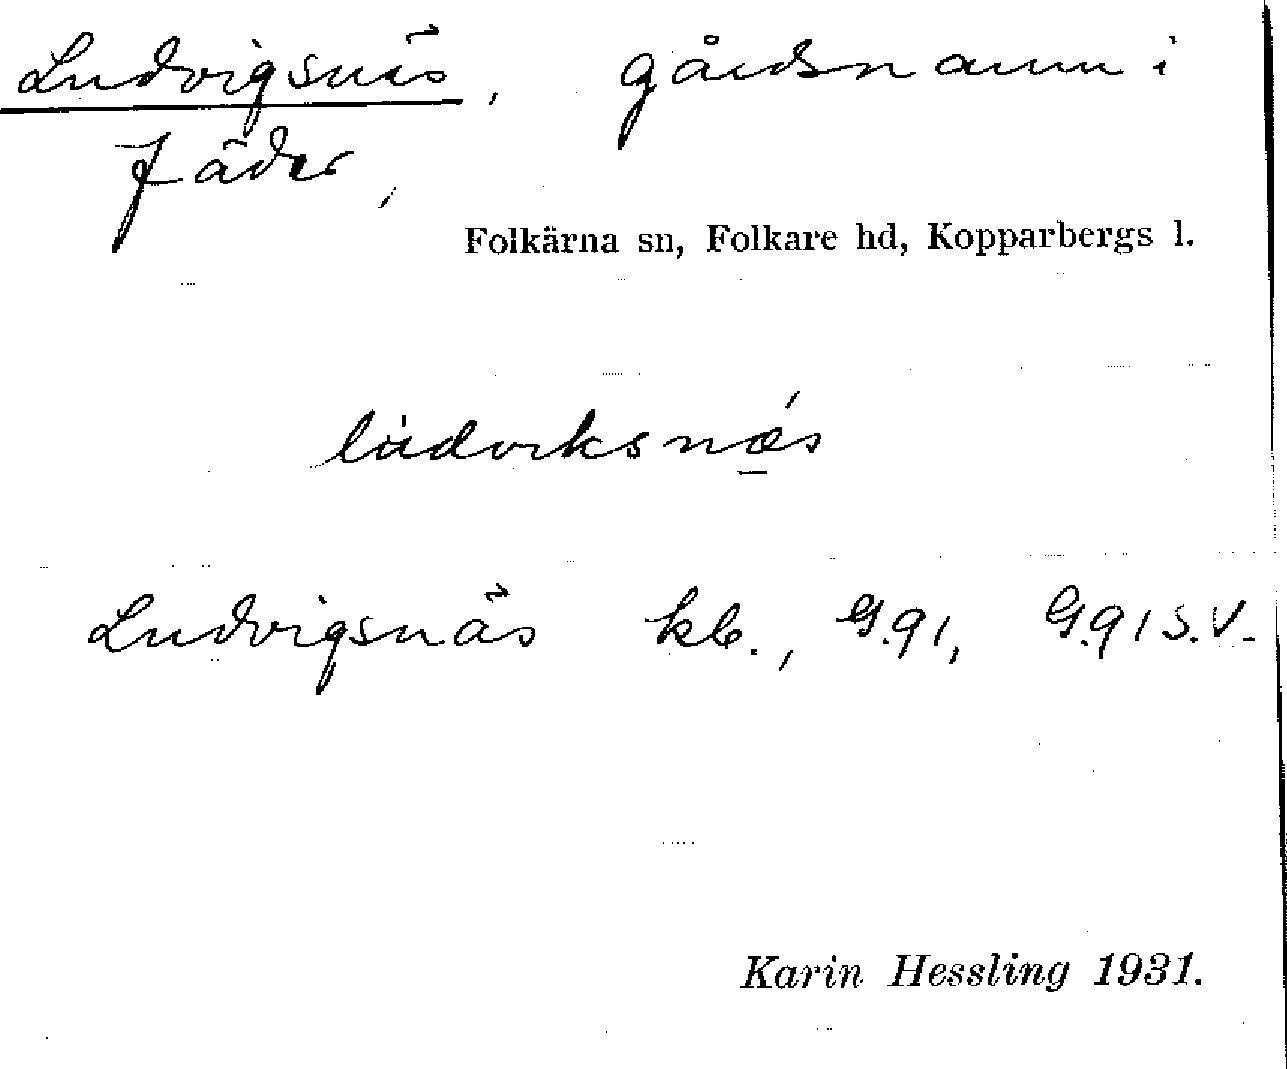 Ludvigsnäs, gårdsnamn i
Jäder,
Folkärna sn, Folkare hd, Kopparbergs l.
lùdvıksnǽs
Ludvigsnäs kb., G.91, G.91 S.V.
Karin Hessling 1931.